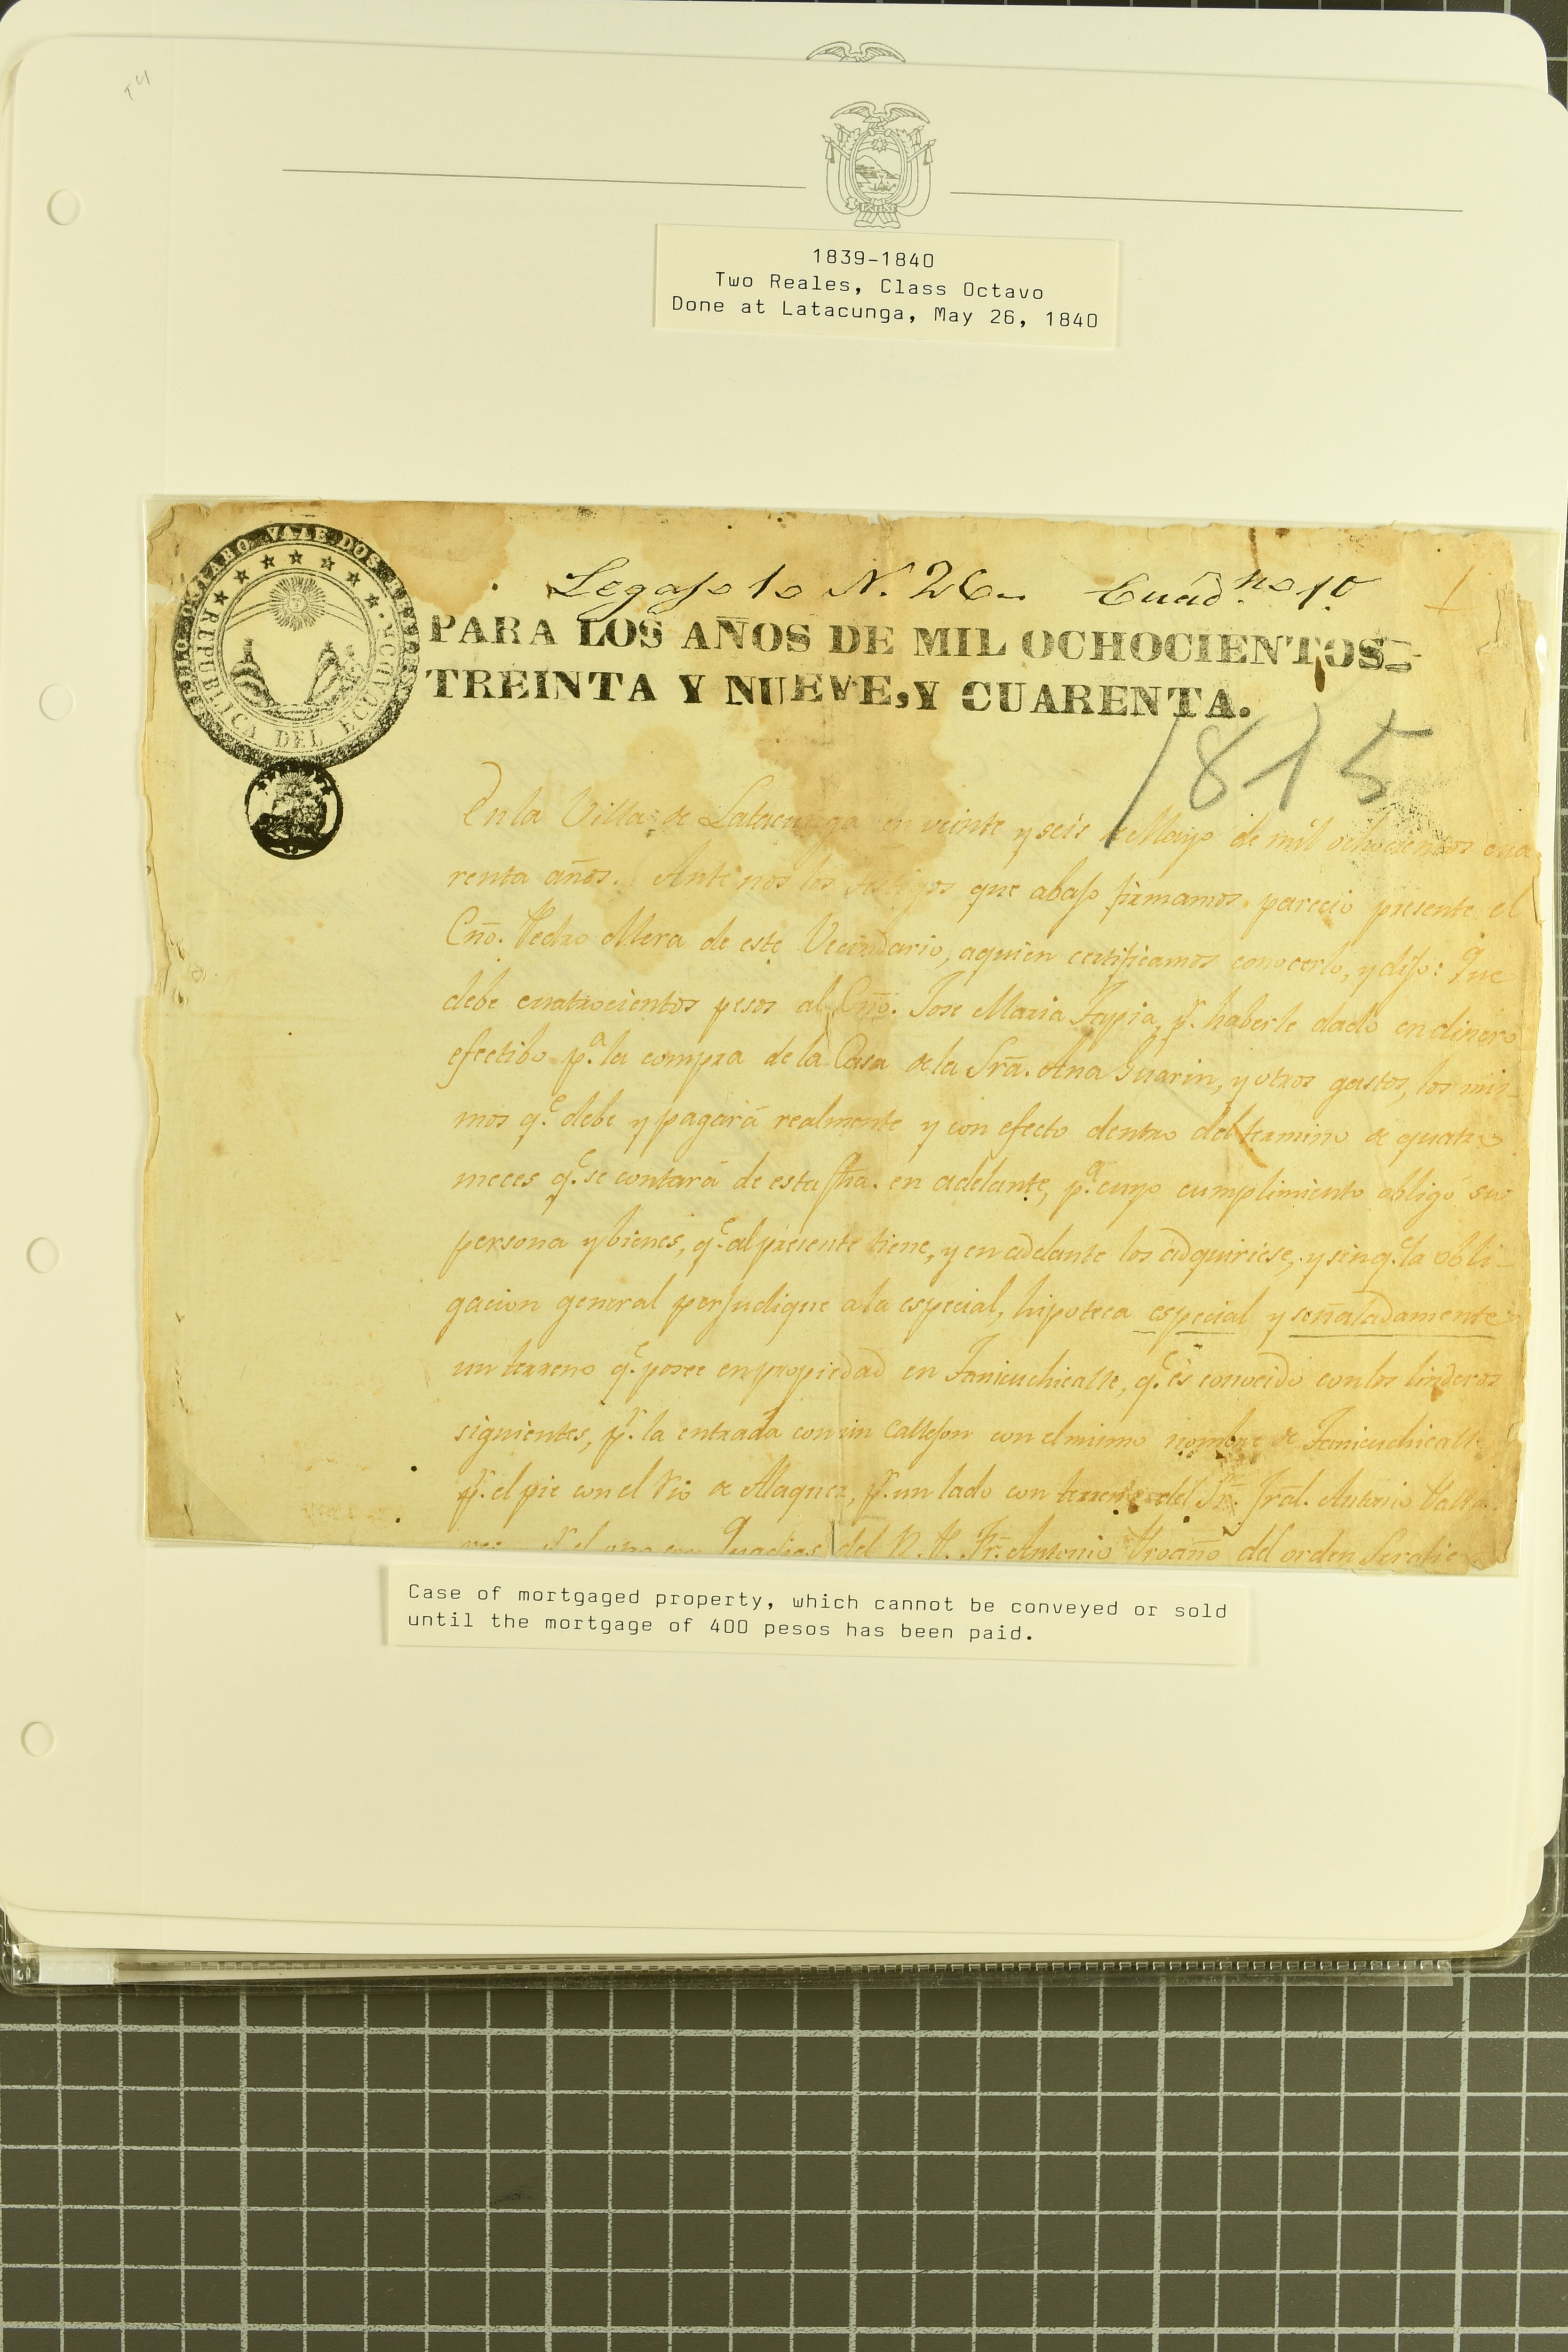 T4
1839-1840
Two Reales, Class Octavo
Done at Latacunga, May 26, 1840
SELLO OCTABO VALE DOS REALES
REPUBLICA DEL ECUADOR.
Legajo 1o N. 26 Cuadno 1o
PARA LOS AÑOS DE MIL OCHOCIENTOS
TREINTA Y NUEVE, Y CUARENTA.
1815
En la Villa de Latacunga en veinte y seis de Mayo de mil ochocientos cua
renta años. Ante nos los testigos que abajo firmamos, parecio presente el
Cño. Pedro Mera de este Vecindario, aquien certificamos conocerlo, y dijo: Que
debe cuatrocientos pesos al Cño. Jose Maria Tapia, pr. haberle dado en dinero
efectibo pa. la compra de la Casa de la Sra. Ana Guarin, y otros gastos, los mis-
mos qe. debe y pagará realmente y con efecto dentro del termino de quatro
meces qe. se contará de esta fha. en adelante, pa. cuyo cumplimiento obligó su
persona y bienes, qe. al presente tiene, y en adelante los adquiriese, y sin qe. la obli-
gacion general perjudique a la especial, hipoteca especial y señaladamente
un terreno qe. posee en propiedad en Tanicuchicalle, qe. es conocido con los linderos
siguientes, pr. la entrada con un callejon con el mismo nombre de Tanicuchicalle
pr. el pie con el Rio de Alaquez, pr. un lado con terreno del Sr. Gral. Antonio
del R. P. Fr. Antonio del orden
Case of mortgaged property, which cannot be conveyed or sold
until the mortgage of 400 pesos has been paid.